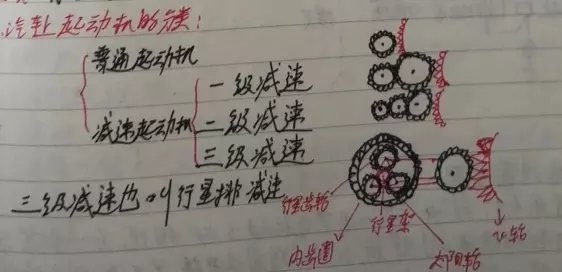 汽车起动机的分类：
普通起动机
减速起动机
一级减速
二级减速
三级减速
三级减速也叫行星排减速
行星齿轮
内齿圈
行星架
太阳轮
飞轮